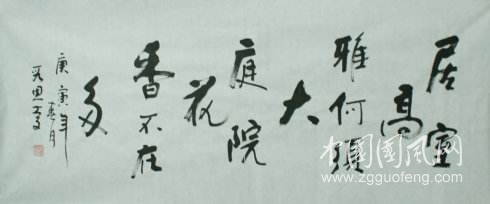 居室
高
雅何須
大
庭院
花
香不在
多
庚寅年
中國國風网
www.zgguofeng.com